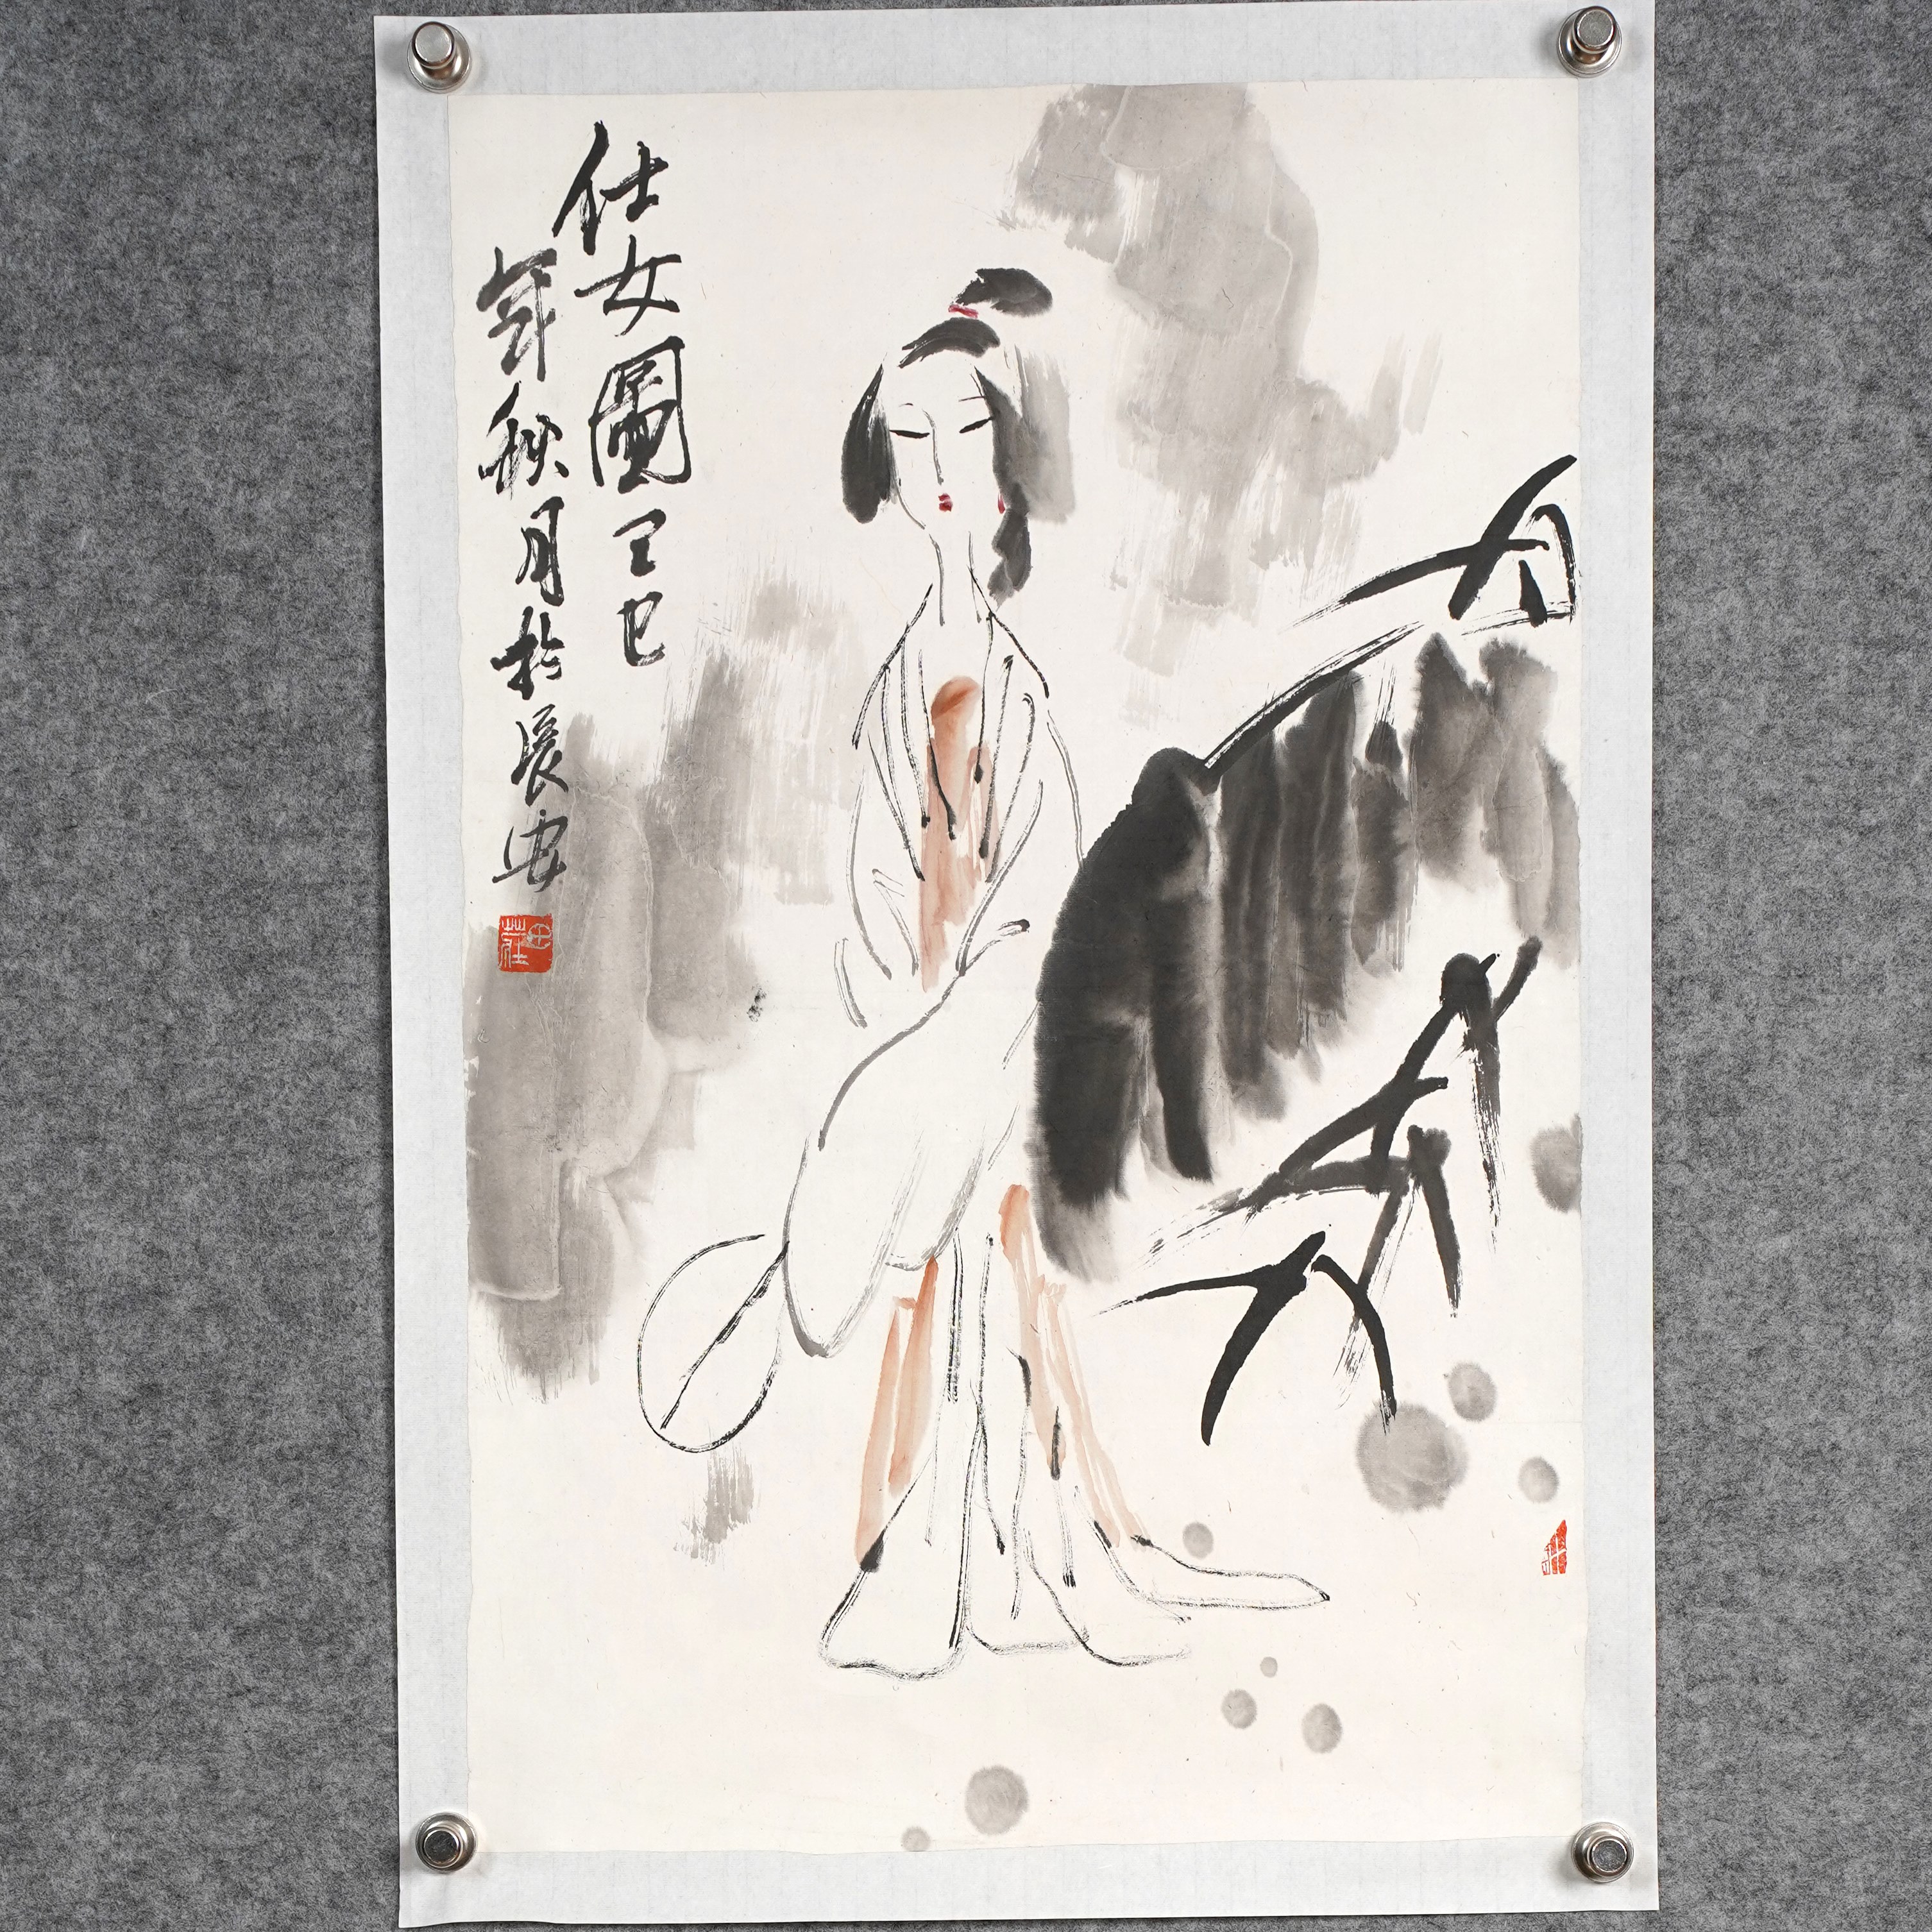 仕女圖己巳
年秋月於長安